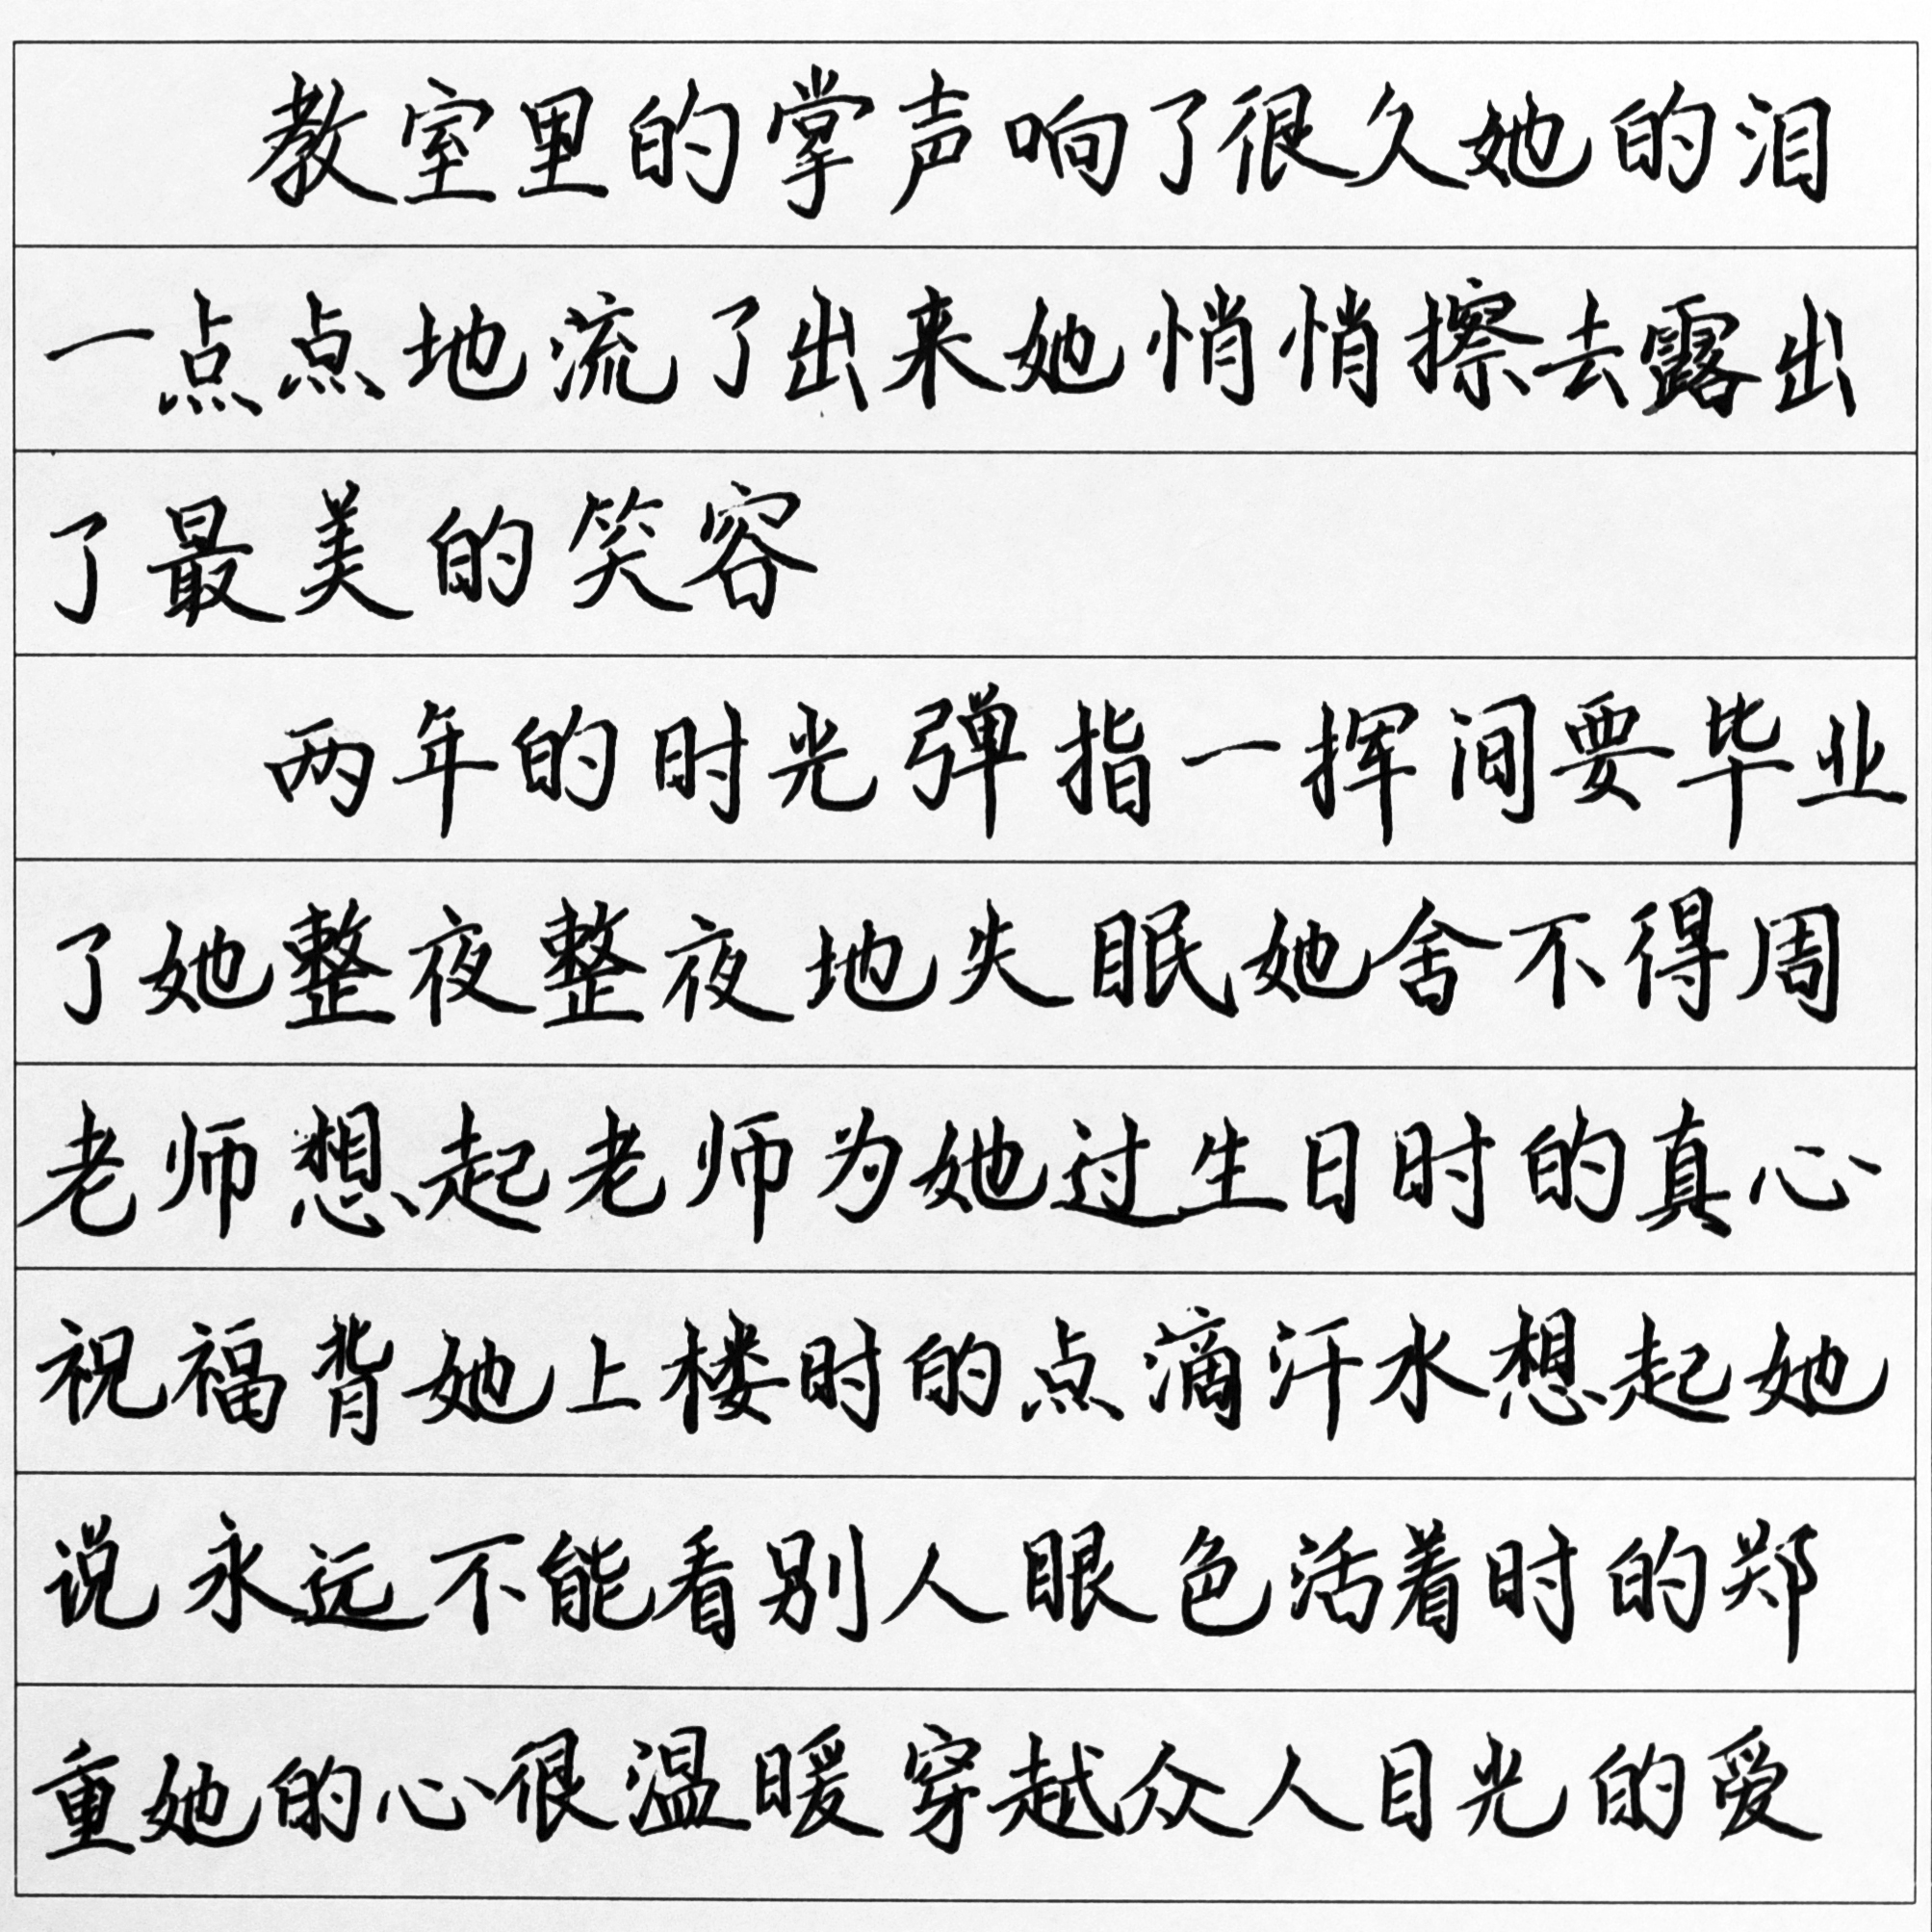 教室里的掌声响了很久她的泪
一点点地流了出来她悄悄擦去露出
了最美的笑容
两年的时光弹指一挥间要毕业
了她整夜整夜地失眠她舍不得周
老师想起老师为她过生日时的真心
祝福背她上楼时的点滴汗水想起她
说永远不能看别人眼色活着时的郑
重她的心很温暖穿越众人目光的爱